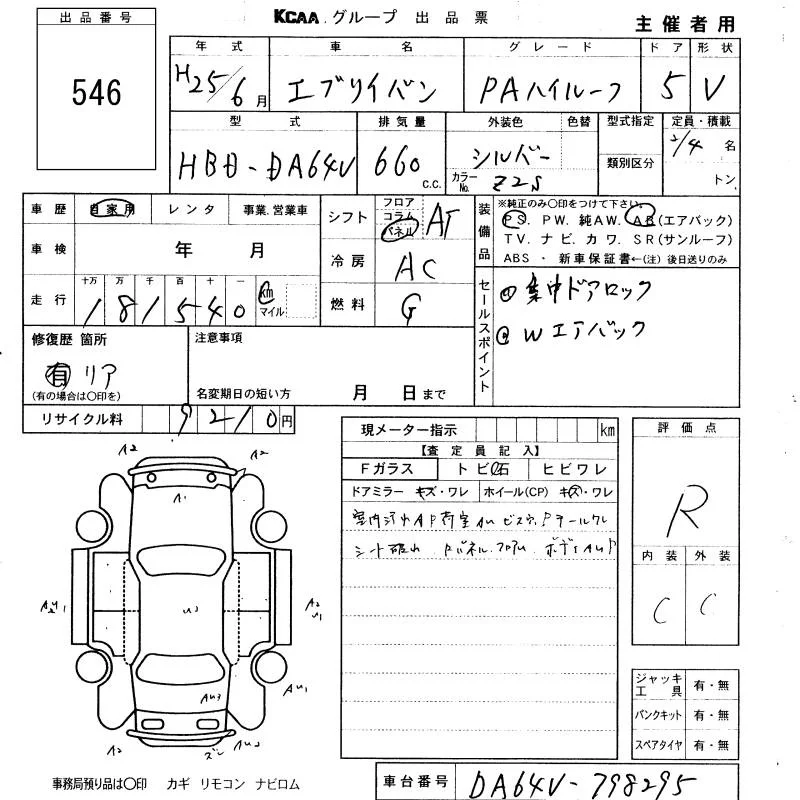 KCAA グループ 出品票
主催者用
出品番号
546
年式 車名 グレード ドア 形状
H25/6月 エブリイバン PAハイルーフ 5 V
型式 排気量 外装色 色替 型式指定 定員・積載
HBD-DA64V 660 c.c. シルバー 2/4 名
カラーNo. Z2S 類別区分 トン
車歴 自家用 レンタ 事業.営業車
車検 年 月
走行 十万 万 千 百 十 一
181540 km マイル
シフト フロア コラム パネル AT
冷房 AC
燃料 G
装備品
※純正のみ〇印をつけて下さい。
PS. PW. 純AW. AB(エアバック)
TV. ナビ. カワ. SR(サンルーフ)
ABS ・ 新車保証書←(注) 後日送りのみ
セールスポイント
集中ドアロック
Wエアバック
修復歴 箇所
有 リア
(有の場合は〇印を)
注意事項
名変期日の短い方 月 日まで
リサイクル料 9210円
現メーター指示 km
【査定員記入】
Fガラス トビ石 ヒビワレ
ドアミラー キズ・ワレ ホイール(CP) キズ・ワレ
シート破れ
評価点
R
内装 外装
C C
A2
A2
A1
U3
A2
U1
AU3
AU1
A2
ズレ
AU2
ジャッキ工具 有・無
パンクキット 有・無
スペアタイヤ 有・無
事務局預り品は〇印 カギ リモコン ナビロム
車台番号 DA64V-798295